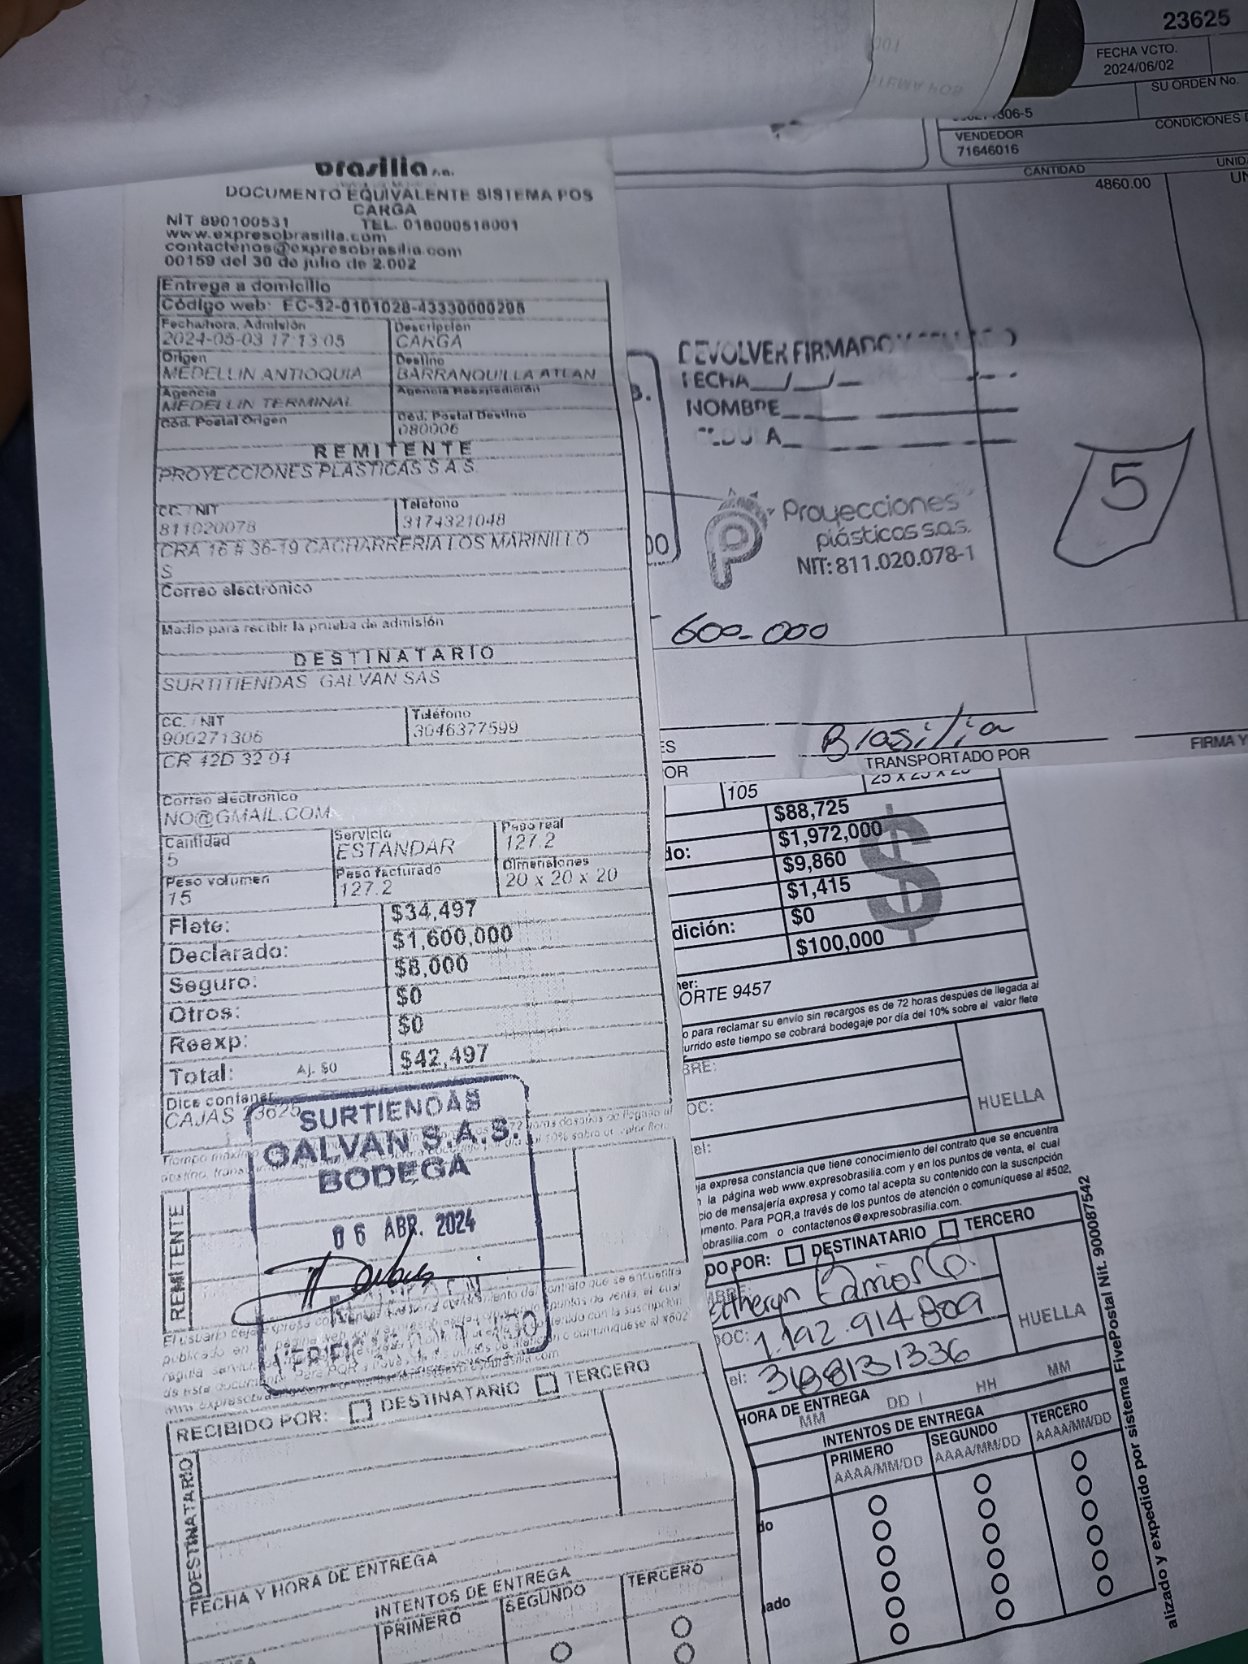 brasilia s.a.
DOCUMENTO EQUIVALENTE SISTEMA POS
CARGA
NIT 890100531 TEL. 018000518001
www.expresobrasilia.com
contactenos@expresobrasilia.com
00159 del 30 de julio de 2.002
Entrega a domicilio
Código web: EC-32-0101028-43330000295
Fecha/hora. Admisión
2024-05-03 17:13:05
Descripción
CARGA
Origen
MEDELLIN ANTIOQUIA
Destino
BARRANQUILLA ATLAN
Agencia
MEDELLIN TERMINAL
Agencia Reexpedición
Cód. Postal Origen
Cód. Postal Destino
080006
REMITENTE
PROYECCIONES PLASTICAS S A S
CC. / NIT
811020078
Teléfono
3174321048
CRA 16 # 36-19 CACHARRERIA LOS MARINILLO
S
Correo electrónico
Medio para recibir la prueba de admisión
DESTINATARIO
SURTITIENDAS GALVAN SAS
CC. / NIT
900271306
Teléfono
3046377599
CR 42D 32 04
Correo electrónico
NO@GMAIL.COM
Cantidad
5
Servicio
ESTANDAR
Peso real
127.2
Peso volumen
15
Peso facturado
127.2
Dimensiones
20 x 20 x 20
Flete: $34,497
Declarado: $1,600,000
Seguro: $8,000
Otros: $0
Reexp: $0
Total: Aj. $0 $42,497
Dice contener
CAJAS 23625
SURTIENDAS
GALVAN S.A.S.
BODEGA
06 ABR. 2024
REMITENTE
RECIBIDO POR: DESTINATARIO TERCERO
DESTINATARIO
FECHA Y HORA DE ENTREGA
INTENTOS DE ENTREGA
PRIMERO SEGUNDO TERCERO
23625
FECHA VCTO.
2024/06/02
SU ORDEN No.
306-5
VENDEDOR
71646016
CONDICIONES
CANTIDAD
4860.00
UNID
UN
DEVOLVER FIRMADO Y
FECHA__/__/__
NOMBRE
5
Proyecciones
plásticas s.a.s.
NIT: 811.020.078-1
600-000
Brasilia
TRANSPORTADO POR
FIRMA Y
ES
OR
105
$88,725
do: $1,972,000
$9,860
$1,415
dición: $0
$100,000
ner:
ORTE 9457
o para reclamar su envío sin recargos es de 72 horas después de llegada al
urrido este tiempo se cobrará bodegaje por día del 10% sobre el valor flete
BRE:
OC:
el:
HUELLA
ja expresa constancia que tiene conocimiento del contrato que se encuentra
la página web www.expresobrasilia.com y en los puntos de venta, el cual
cio de mensajería expresa y como tal acepta su contenido con la suscripción
mento. Para PQR,a través de los puntos de atención o comuníquese al #502,
obrasilia.com o contactenos@expresobrasilia.com.
DO POR: DESTINATARIO TERCERO
DOC: 1.192.914.809
el: 3188131336
HUELLA
HORA DE ENTREGA
MM DD HH MM
INTENTOS DE ENTREGA
PRIMERO SEGUNDO TERCERO
AAAA/MM/DD AAAA/MM/DD AAAA/MM/DD
do
ado
alizado y expedido por sistema FivePostal Nit. 900087542